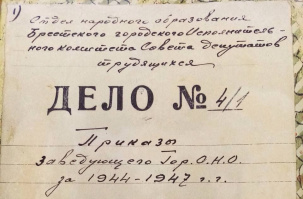 1)
Отдел народного образования
Брестского городского Исполнитель-
ного комитета Совета депутатов
трудящихся
ДЕЛО № 4/1
Приказы
заведующего Гор.О.Н.О.
за 1944-1947 г.г.